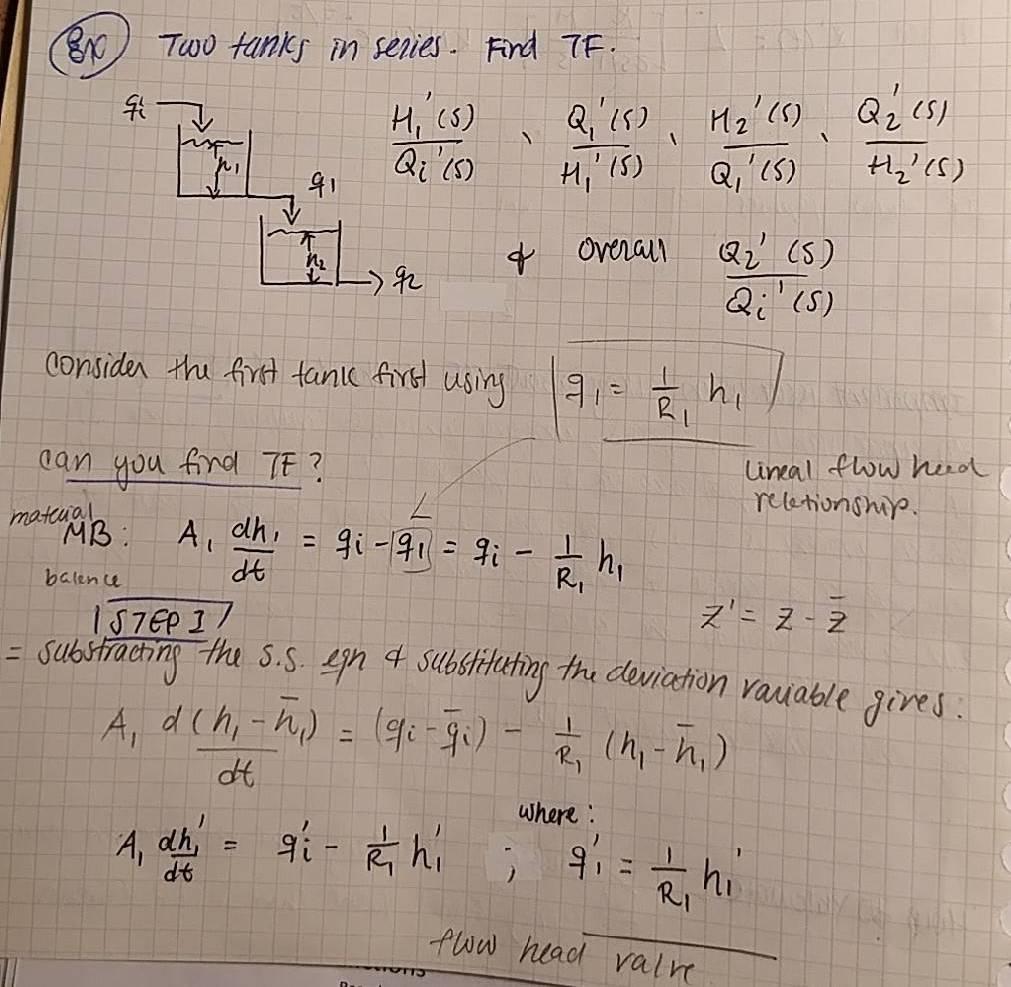 Ex Two tanks in series. Find TF.
qi
h1
q1
h2
q2
H1'(s)/Qi'(s) , Q1'(s)/H1'(s) , H2'(s)/Q1'(s) , Q2'(s)/H2'(s)
& overall Q2'(s)/Qi'(s)
consider the first tank first using q1 = 1/R1 h1
can you find TF?
lineal flow head
reletionship.
material
MB: A1 dh1/dt = qi - q1 = qi - 1/R1 h1
balence
STEP I
z' = z - z̄
= substracting the s.s. eqn & substituting the deviation variable gives:
A1 d(h1 - h̄1)/dt = (qi - q̄i) - 1/R1 (h1 - h̄1)
where:
A1 dh1'/dt = qi' - 1/R1 h1' ; q1' = 1/R1 h1'
flow head valve